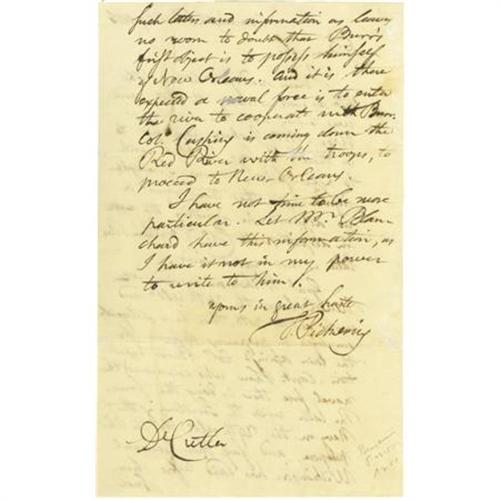 such letters and information as leaves
no room to doubt that Burr's
first object is to possess himself
of New Orleans. and it is there
expected a naval force is to enter
the river to cooperate with Burr.
Col. Cushing is coming down the
Red River with the troops, to
proceed to New-Orleans.
I have not time to be more
particular. Let Mr. Blan-
chard have this information, as
I have it not in my power
to write to him.
yours in great haste
T. Pickering
Dr Cutler